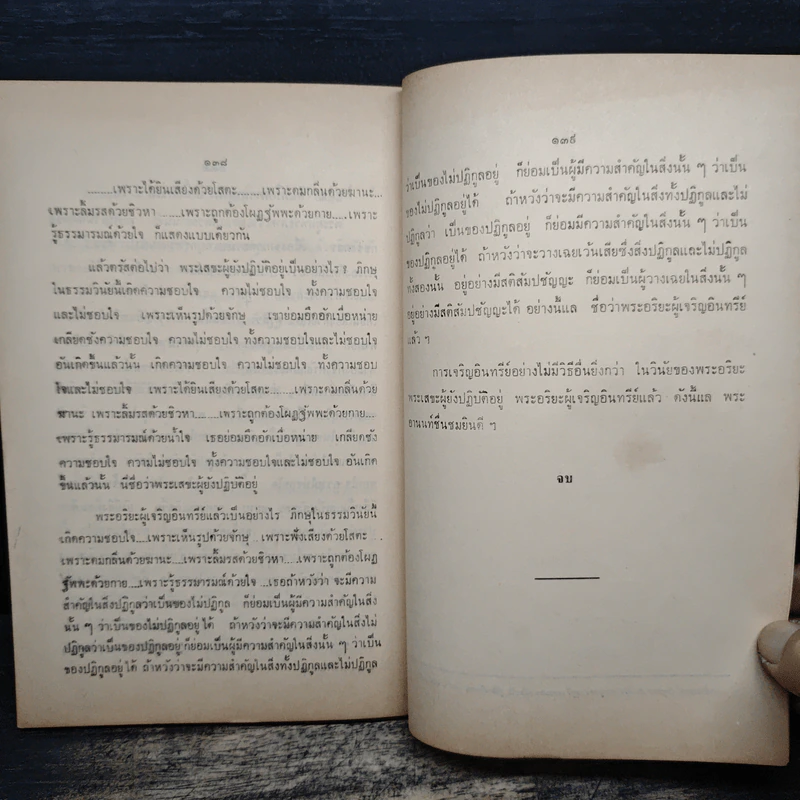 ๑๓๘
.........เพราะได้ยินเสียงด้วยโสตะ.......เพราะดมกลิ่นด้วยฆานะ...
เพราะลิ้มรสด้วยชิวหา ......เพราะถูกต้องโผฏฐัพพะด้วยกาย.....เพราะ
รู้ธรรมารมณ์ด้วยใจ ก็แสดงแบบเดียวกัน
แล้วตรัสต่อไปว่า พระเสขะผู้ยังปฏิบัติอยู่เป็นอย่างไร ? ภิกษุ
ในธรรมวินัยนี้เกิดความชอบใจ ความไม่ชอบใจ ทั้งความชอบใจ
และไม่ชอบใจ เพราะเห็นรูปด้วยจักษุ เขาย่อมอึดอัดเบื่อหน่าย
เกลียดชังความชอบใจ ความไม่ชอบใจ ทั้งความชอบใจและไม่ชอบใจ
อันเกิดขึ้นแล้วนั้น เกิดความชอบใจ ความไม่ชอบใจ ทั้งความชอบ
ใจและไม่ชอบใจ เพราะได้ยินเสียงด้วยโสตะ........เพราะดมกลิ่นด้วย
ฆานะ เพราะลิ้มรสด้วยชิวหา........เพราะถูกต้องโผฏฐัพพะด้วยกาย....
เพราะรู้ธรรมารมณ์ด้วยน้ำใจ เธอย่อมอึดอัดเบื่อหน่าย เกลียดชัง
ความชอบใจ ความไม่ชอบใจ ทั้งความชอบใจและไม่ชอบใจ อันเกิด
ขึ้นแล้วนั้น นี่ชื่อว่าพระเสขะผู้ยังปฏิบัติอยู่
พระอริยะผู้เจริญอินทรีย์แล้วเป็นอย่างไร ภิกษุในธรรมวินัยนี้
เกิดความชอบใจ.....เพราะเห็นรูปด้วยจักษุ เพราะฟังเสียงด้วยโสตะ .
เพราะดมกลิ่นด้วยฆานะ....เพราะลิ้มรสด้วยชิวหา....เพราะถูกต้องโผฏ
ฐัพพะด้วยกาย....เพราะรู้ธรรมารมณ์ด้วยใจ ...เธอถ้าหวังว่า จะมีความ
สำคัญในสิ่งปฏิกูลว่าเป็นของไม่ปฏิกูล ก็ย่อมเป็นผู้มีความสำคัญในสิ่ง
นั้น ๆ ว่าเป็นของไม่ปฏิกูลอยู่ได้ ถ้าหวังว่าจะมีความสำคัญในสิ่งไม่
ปฏิกูลว่าเป็นของปฏิกูลอยู่ ก็ย่อมเป็นผู้มีความสำคัญในสิ่งนั้น ๆ ว่าเป็น
ของปฏิกูลอยู่ได้ ถ้าหวังว่าจะมีความสำคัญในสิ่งทั้งปฏิกูลและไม่ปฏิกูล
๑๓๙
ว่าเป็นของไม่ปฏิกูลอยู่ ก็ย่อมเป็นผู้มีความสำคัญในสิ่งนั้น ๆ ว่าเป็น
ของไม่ปฏิกูลอยู่ได้ ถ้าหวังว่าจะมีความสำคัญในสิ่งทั้งปฏิกูลและไม่
ปฏิกูลว่า เป็นของปฏิกูลอยู่ ก็ย่อมมีความสำคัญในสิ่งนั้น ๆ ว่าเป็น
ของปฏิกูลอยู่ได้ ถ้าหวังว่าจะวางเฉยเว้นเสียซึ่งสิ่งปฏิกูลและไม่ปฏิกูล
ทั้งสองนั้น อยู่อย่างมีสติสัมปชัญญะ ก็ย่อมเป็นผู้วางเฉยในสิ่งนั้น ๆ
อยู่อย่างมีสติสัมปชัญญะได้ อย่างนี้แล ชื่อว่าพระอริยะผู้เจริญอินทรีย์
แล้ว ๆ
การเจริญอินทรีย์อย่างไม่มีวิธีอื่นยิ่งกว่า ในวินัยของพระอริยะ
พระเสขะผู้ยังปฏิบัติอยู่ พระอริยะผู้เจริญอินทรีย์แล้ว ดังนี้แล พระ
อานนท์ชื่นชมยินดี ฯ
จบ